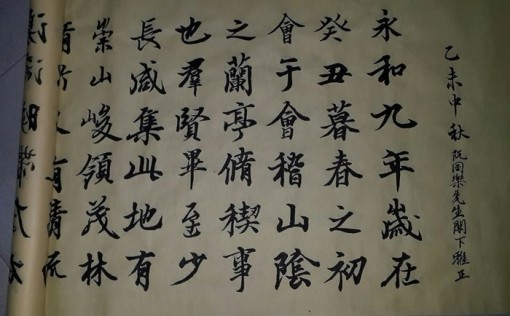 乙未中秋 阮国樂先生閣下雅正
永和九年歲在
癸丑暮春之初
會于會稽山陰
之蘭亭脩稧事
也羣賢畢至少
長咸集此地有
崇山峻領茂林
有清流